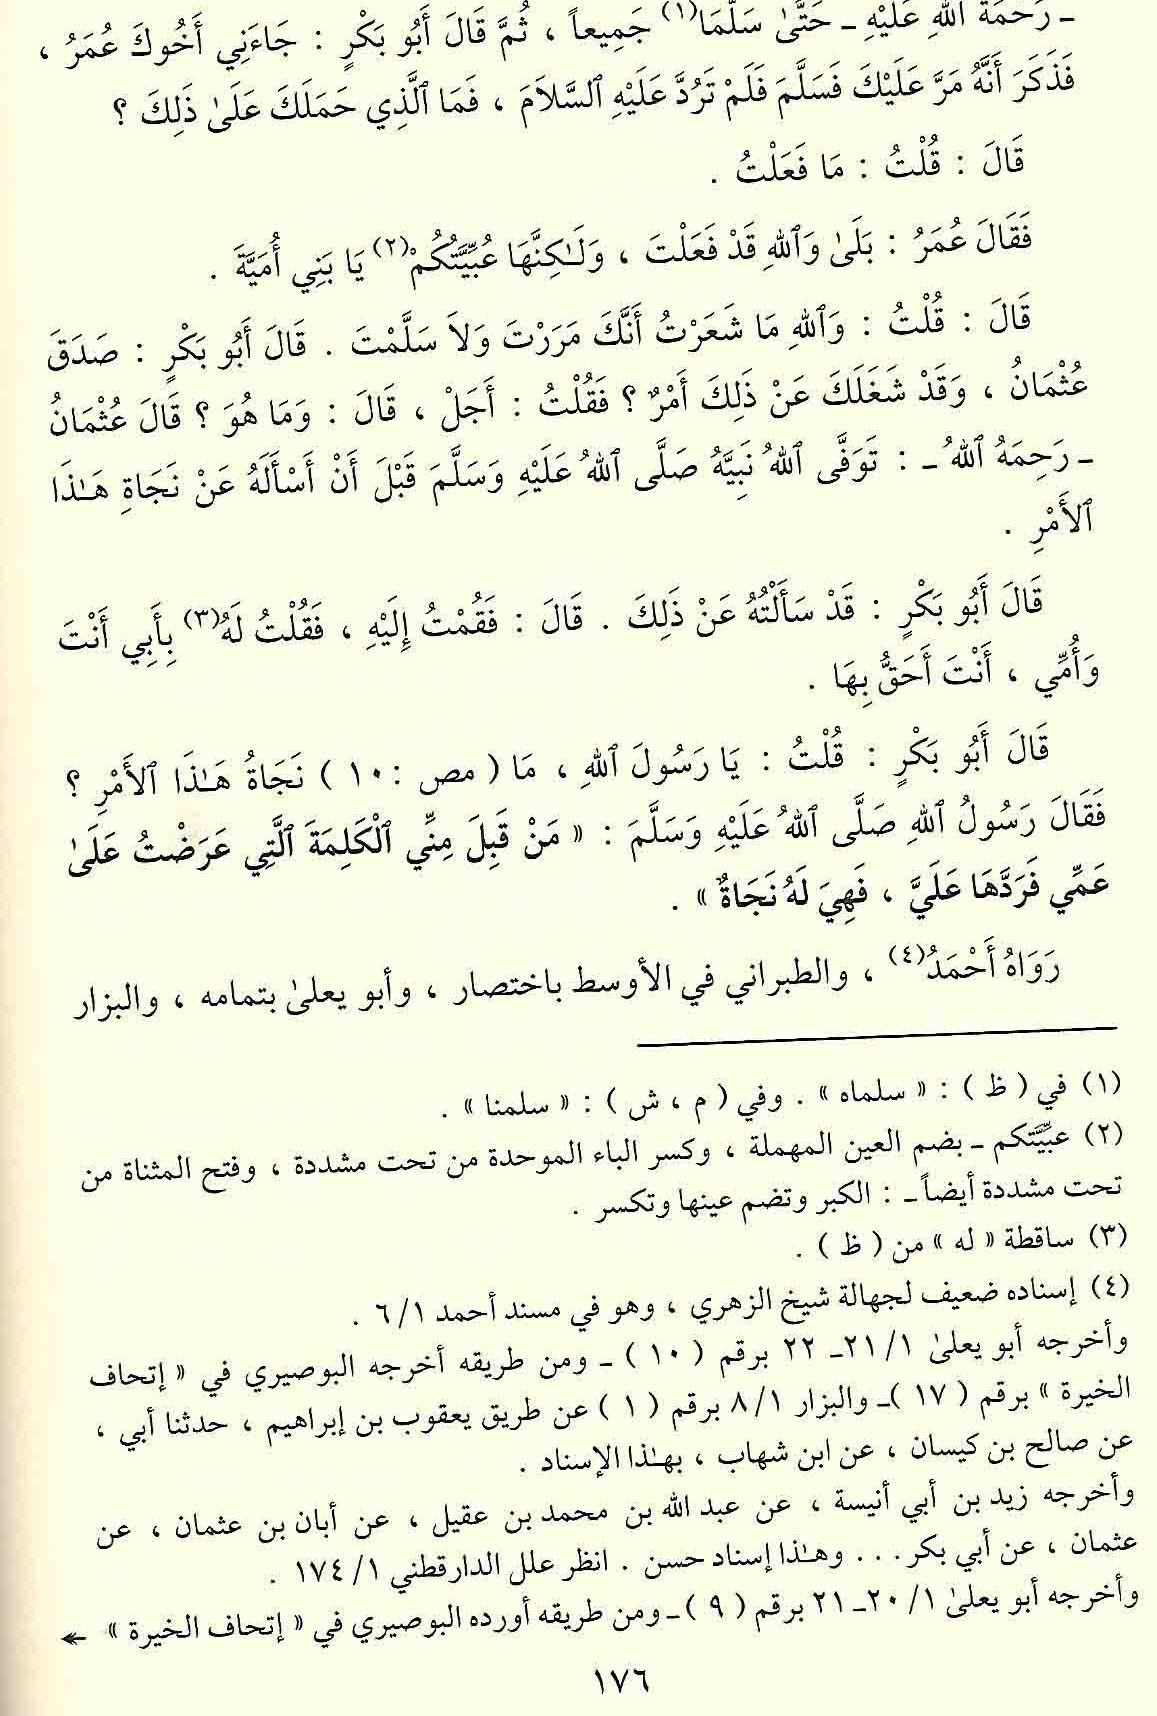 ـ رَحْمَةُ ٱللهِ عَلَيْهِ ـ حَتَّىٰ سَلَّمَا(١) جَمِيعاً ، ثُمَّ قَالَ أَبُو بَكْرٍ : جَاءَنِي أَخُوكَ عُمَرُ ،
فَذَكَرَ أَنَّهُ مَرَّ عَلَيْكَ فَسَلَّمَ فَلَمْ تَرُدَّ عَلَيْهِ ٱلسَّلاَمَ ، فَمَا ٱلَّذِي حَمَلَكَ عَلَىٰ ذَلِكَ ؟
قَالَ : قُلْتُ : مَا فَعَلْتُ .
فَقَالَ عُمَرُ : بَلَىٰ وَٱللهِ قَدْ فَعَلْتَ ، وَلَـٰكِنَّهَا عُبِّيَّتُكُمْ(٢) يَا بَنِي أُمَيَّةَ .
قَالَ : قُلْتُ : وَٱللهِ مَا شَعَرْتُ أَنَّكَ مَرَرْتَ وَلاَ سَلَّمْتَ . قَالَ أَبُو بَكْرٍ : صَدَقَ
عُثْمَانُ ، وَقَدْ شَغَلَكَ عَنْ ذَلِكَ أَمْرٌ ؟ فَقُلْتُ : أَجَلْ ، قَالَ : وَمَا هُوَ ؟ قَالَ عُثْمَانُ
ـ رَحِمَهُ ٱللهُ ـ : تَوَفَّى ٱللهُ نَبِيَّهُ صَلَّى ٱللهُ عَلَيْهِ وَسَلَّمَ قَبْلَ أَنْ أَسْأَلَهُ عَنْ نَجَاةِ هَـٰذَا
ٱلأَمْرِ .
قَالَ أَبُو بَكْرٍ : قَدْ سَأَلْتُهُ عَنْ ذَلِكَ . قَالَ : فَقُمْتُ إِلَيْهِ ، فَقُلْتُ لَهُ(٣) بِأَبِي أَنْتَ
وَأُمِّي ، أَنْتَ أَحَقُّ بِهَا .
قَالَ أَبُو بَكْرٍ : قُلْتُ : يَا رَسُولَ ٱللهِ ، مَا ( مص : ١٠ ) نَجَاةُ هَـٰذَا ٱلأَمْرِ ؟
فَقَالَ رَسُولُ ٱللهِ صَلَّى ٱللهُ عَلَيْهِ وَسَلَّمَ : « مَنْ قَبِلَ مِنِّي ٱلْكَلِمَةَ ٱلَّتِي عَرَضْتُ عَلَىٰ
عَمِّي فَرَدَّهَا عَلَيَّ ، فَهِيَ لَهُ نَجَاةٌ » .
رَوَاهُ أَحْمَدُ(٤) ، والطبراني في الأوسط باختصار ، وأبو يعلىٰ بتمامه ، والبزار
(١) في ( ظ ) : « سلماه » . وفي ( م ، ش ) : « سلمنا » .
(٢) عبِّيَّتكم ـ بضم العين المهملة ، وكسر الباء الموحدة من تحت مشددة ، وفتح المثناة من
تحت مشددة أيضاً ـ : الكبر وتضم عينها وتكسر .
(٣) ساقطة « له » من ( ظ ) .
(٤) إسناده ضعيف لجهالة شيخ الزهري ، وهو في مسند أحمد ٦/١ .
وأخرجه أبو يعلىٰ ٢١/١ـ ٢٢ برقم ( ١٠ ) ـ ومن طريقه أخرجه البوصيري في « إتحاف
الخيرة » برقم ( ١٧ ) ـ والبزار ٨/١ برقم ( ١ ) عن طريق يعقوب بن إبراهيم ، حدثنا أبي ،
عن صالح بن كيسان ، عن ابن شهاب ، بهـٰذا الإسناد .
وأخرجه زيد بن أبي أنيسة ، عن عبد الله بن محمد بن عقيل ، عن أبان بن عثمان ، عن
عثمان ، عن أبي بكر . . . وهـٰذا إسناد حسن . انظر علل الدارقطني ١٧٤/١ .
وأخرجه أبو يعلىٰ ٢٠/١ـ ٢١ برقم ( ٩ ) ـ ومن طريقه أورده البوصيري في « إتحاف الخيرة » ←
١٧٦